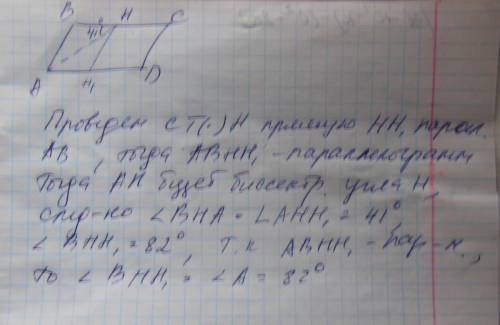 B H C
41°
A H₁ D
Проведем с т(·) H прямую HH₁ парал.
AB, тогда ABHH₁ - параллелограмм
Тогда AH будет биссектр. угла H,
след-но ∠BHA = ∠AHH₁ = 41°
∠BHH₁ = 82°, т.к ABHH₁ - пар-м.,
то ∠BHH₁ = ∠A = 82°